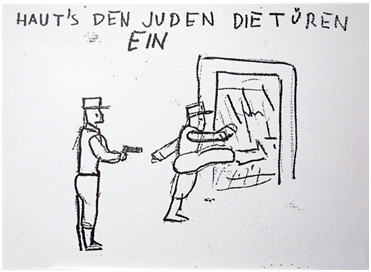 HAUT'S DEN JUDEN DIE TÜREN
EIN